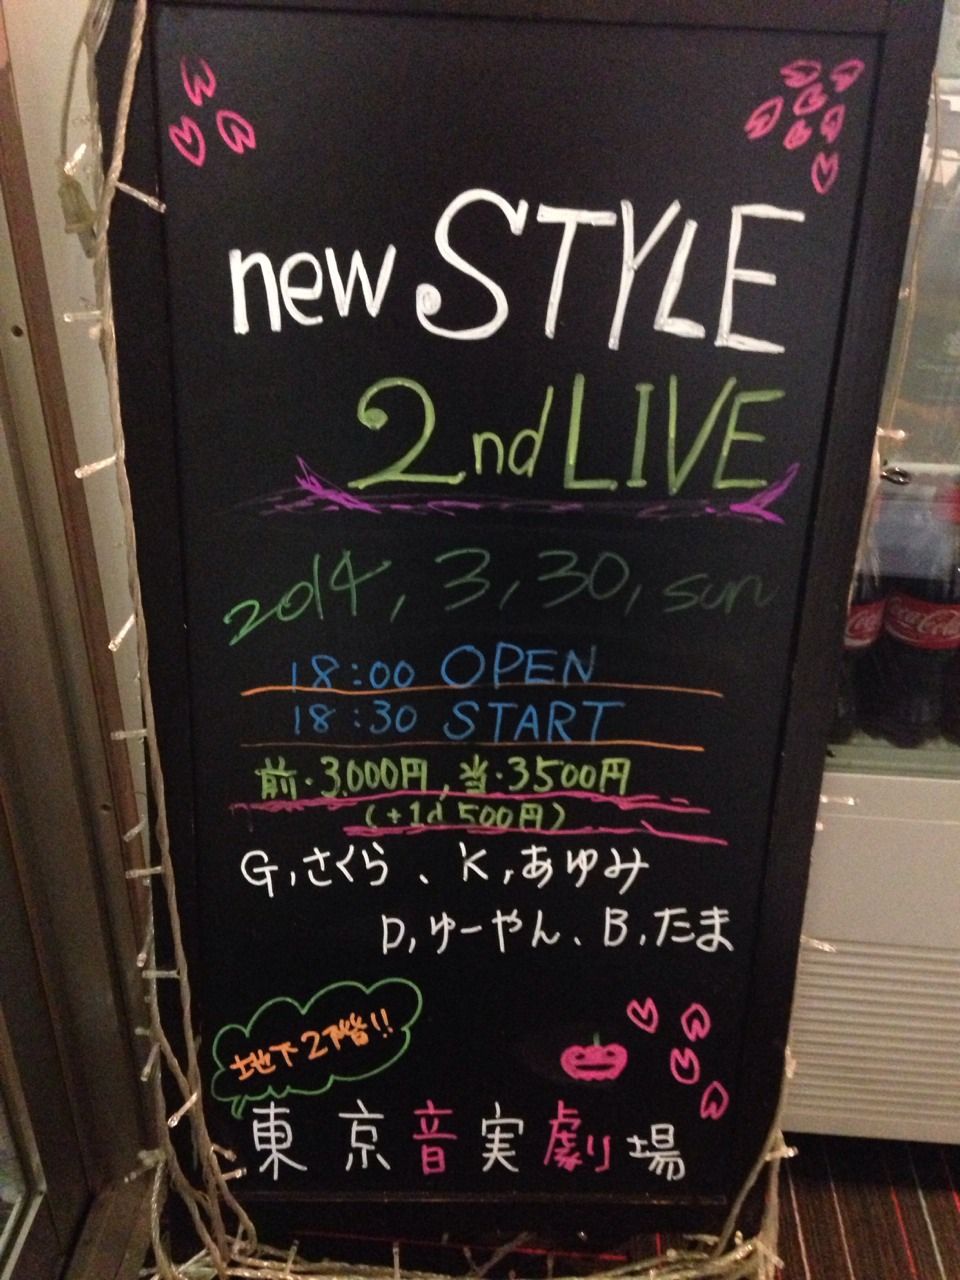 new STYLE
2nd LIVE
2014, 3, 30, sun
18:00 OPEN
18:30 START
前・3.000円, 当・3500円
(+1d 500円)
G,さくら、K,あゆみ
D,ゆーやん、B,たま
地下2階!!
東京音実劇場
Coca-Cola